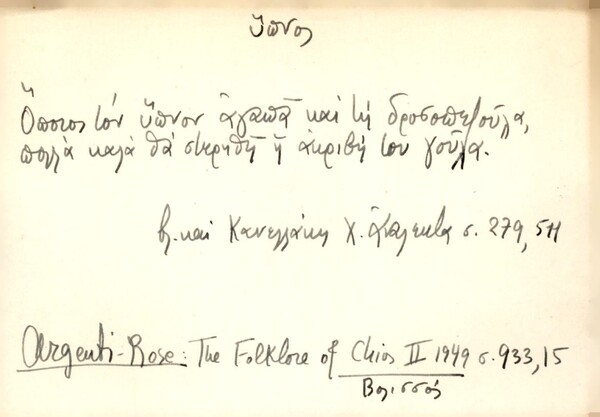 ὕπνος
Ὅποιος τὸν ὕπνον ἀγαπᾷ καὶ τὴ δροσοπεζούλα,
πολλὰ καλὰ θὰ στερηθῇ ἡ ἀκριβή του γούλα.
βλ. καὶ Κανελλάκη Χ. Ἀνάλεκτα σ. 279, 511
Argenti-Rose: The Folklore of Chios II 1949 σ. 933, 15
Βολισσός